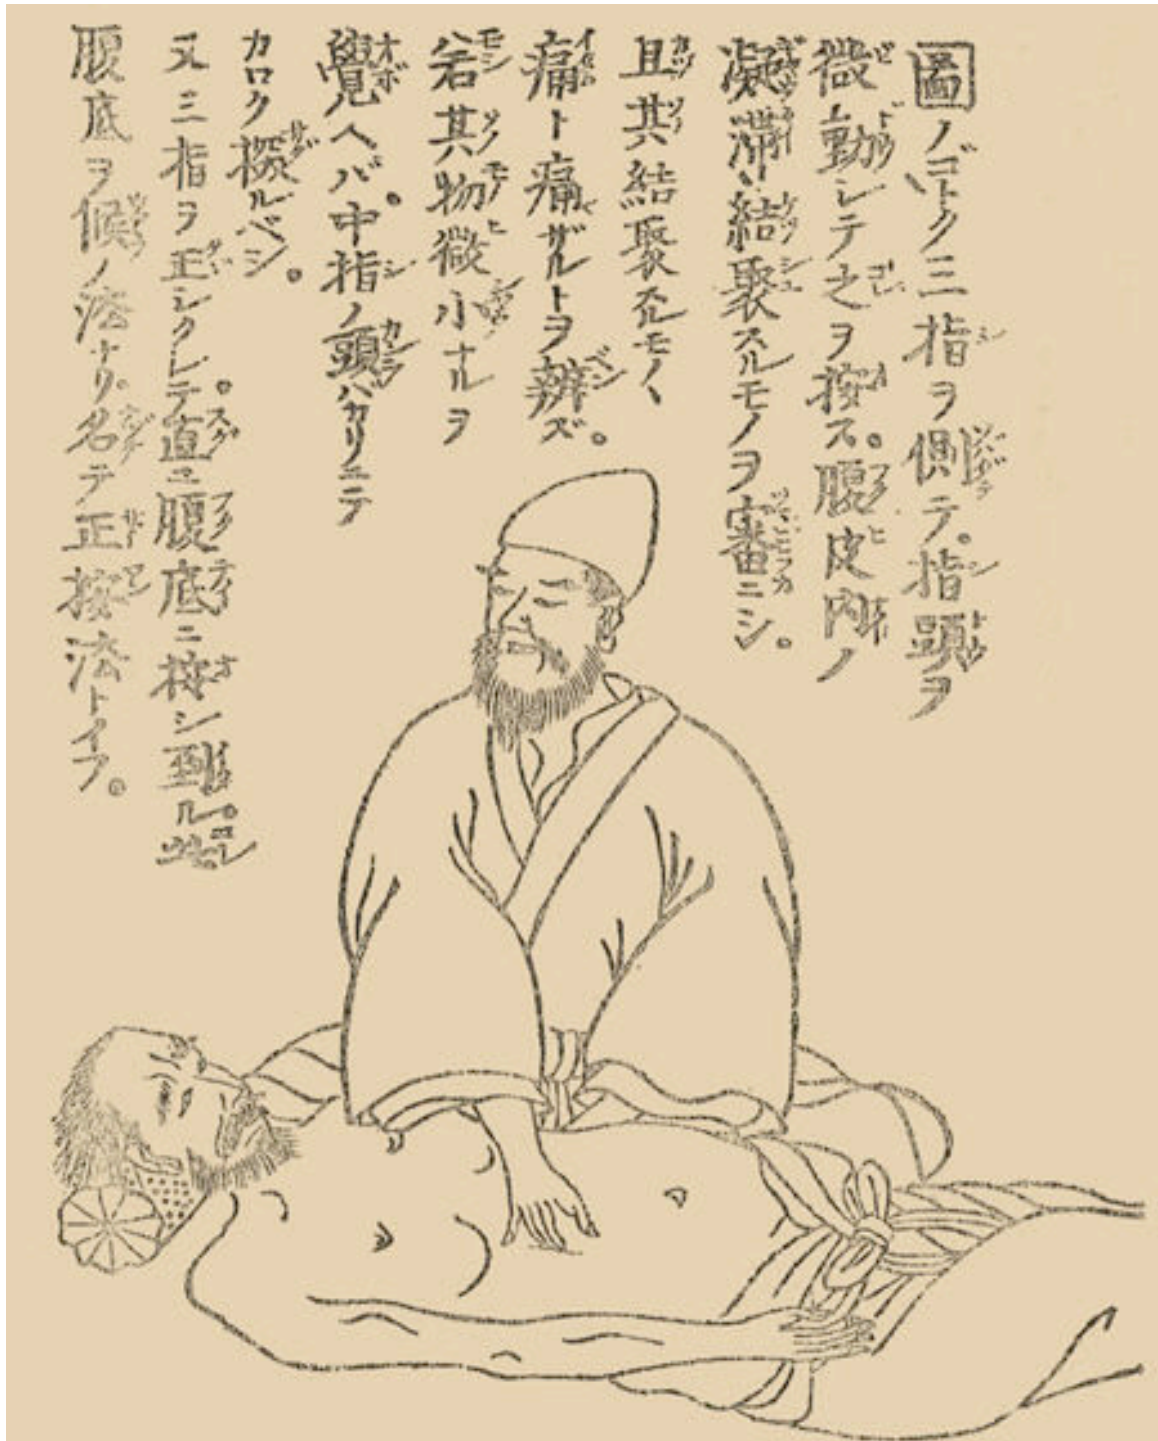 圖ノゴトク三指ヲ側テ。指頭ヲ
微動シテ之ヲ按ス。腹皮内ノ
凝滞結聚スルモノヲ審ニシ。
且其結聚スルモノヽ
痛ト痛ザルトヲ辨ズ。
若其物微小ナルヲ
覺ヘバ。中指ノ頭バカリニテ
カロク探ルベシ。
又三指ヲ正シクシテ。直ニ腹底ニ按シ到ル。此レ
腹底ヲ候ノ法ナリ。名テ正按法トイフ。